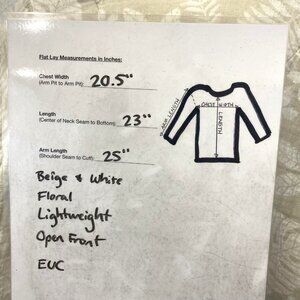 Flat Lay Measurements in Inches:
Chest Width
(Arm Pit to Arm Pit) 20.5"
Length
(Center of Neck Seam to Bottom) 23"
Arm Length
(Shoulder Seam to Cuff) 25"
ARM LENGTH
CHEST WIDTH
LENGTH
Beige & White
Floral
Lightweight
Open Front
EUC